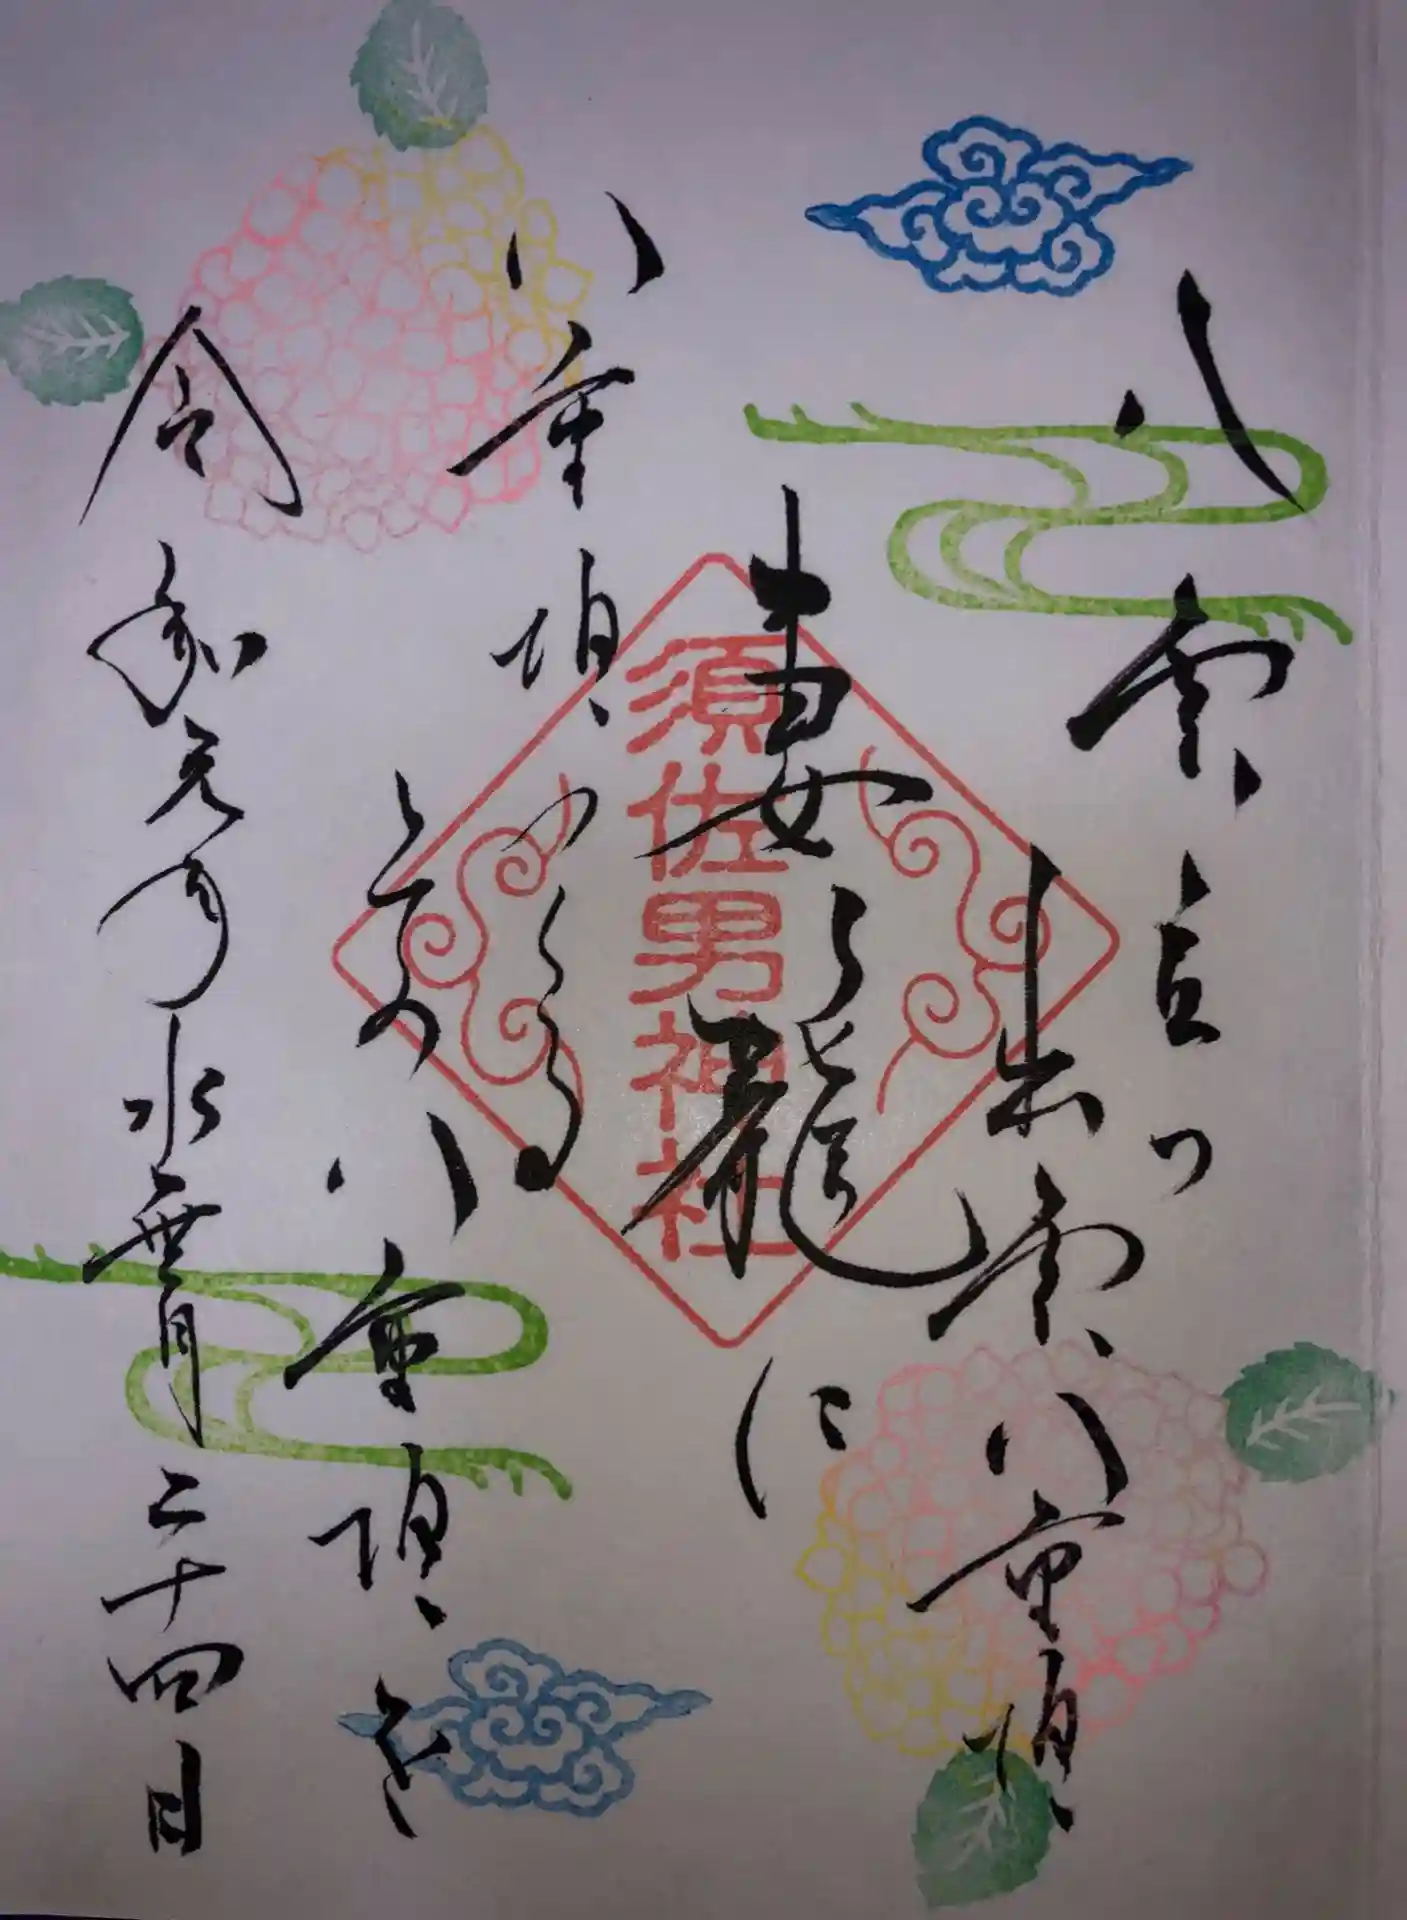 八雲立つ
出雲八重垣
妻ご籠
に
八重垣つくる
その八重垣を
令和元年水無月二十四日
須佐男神社